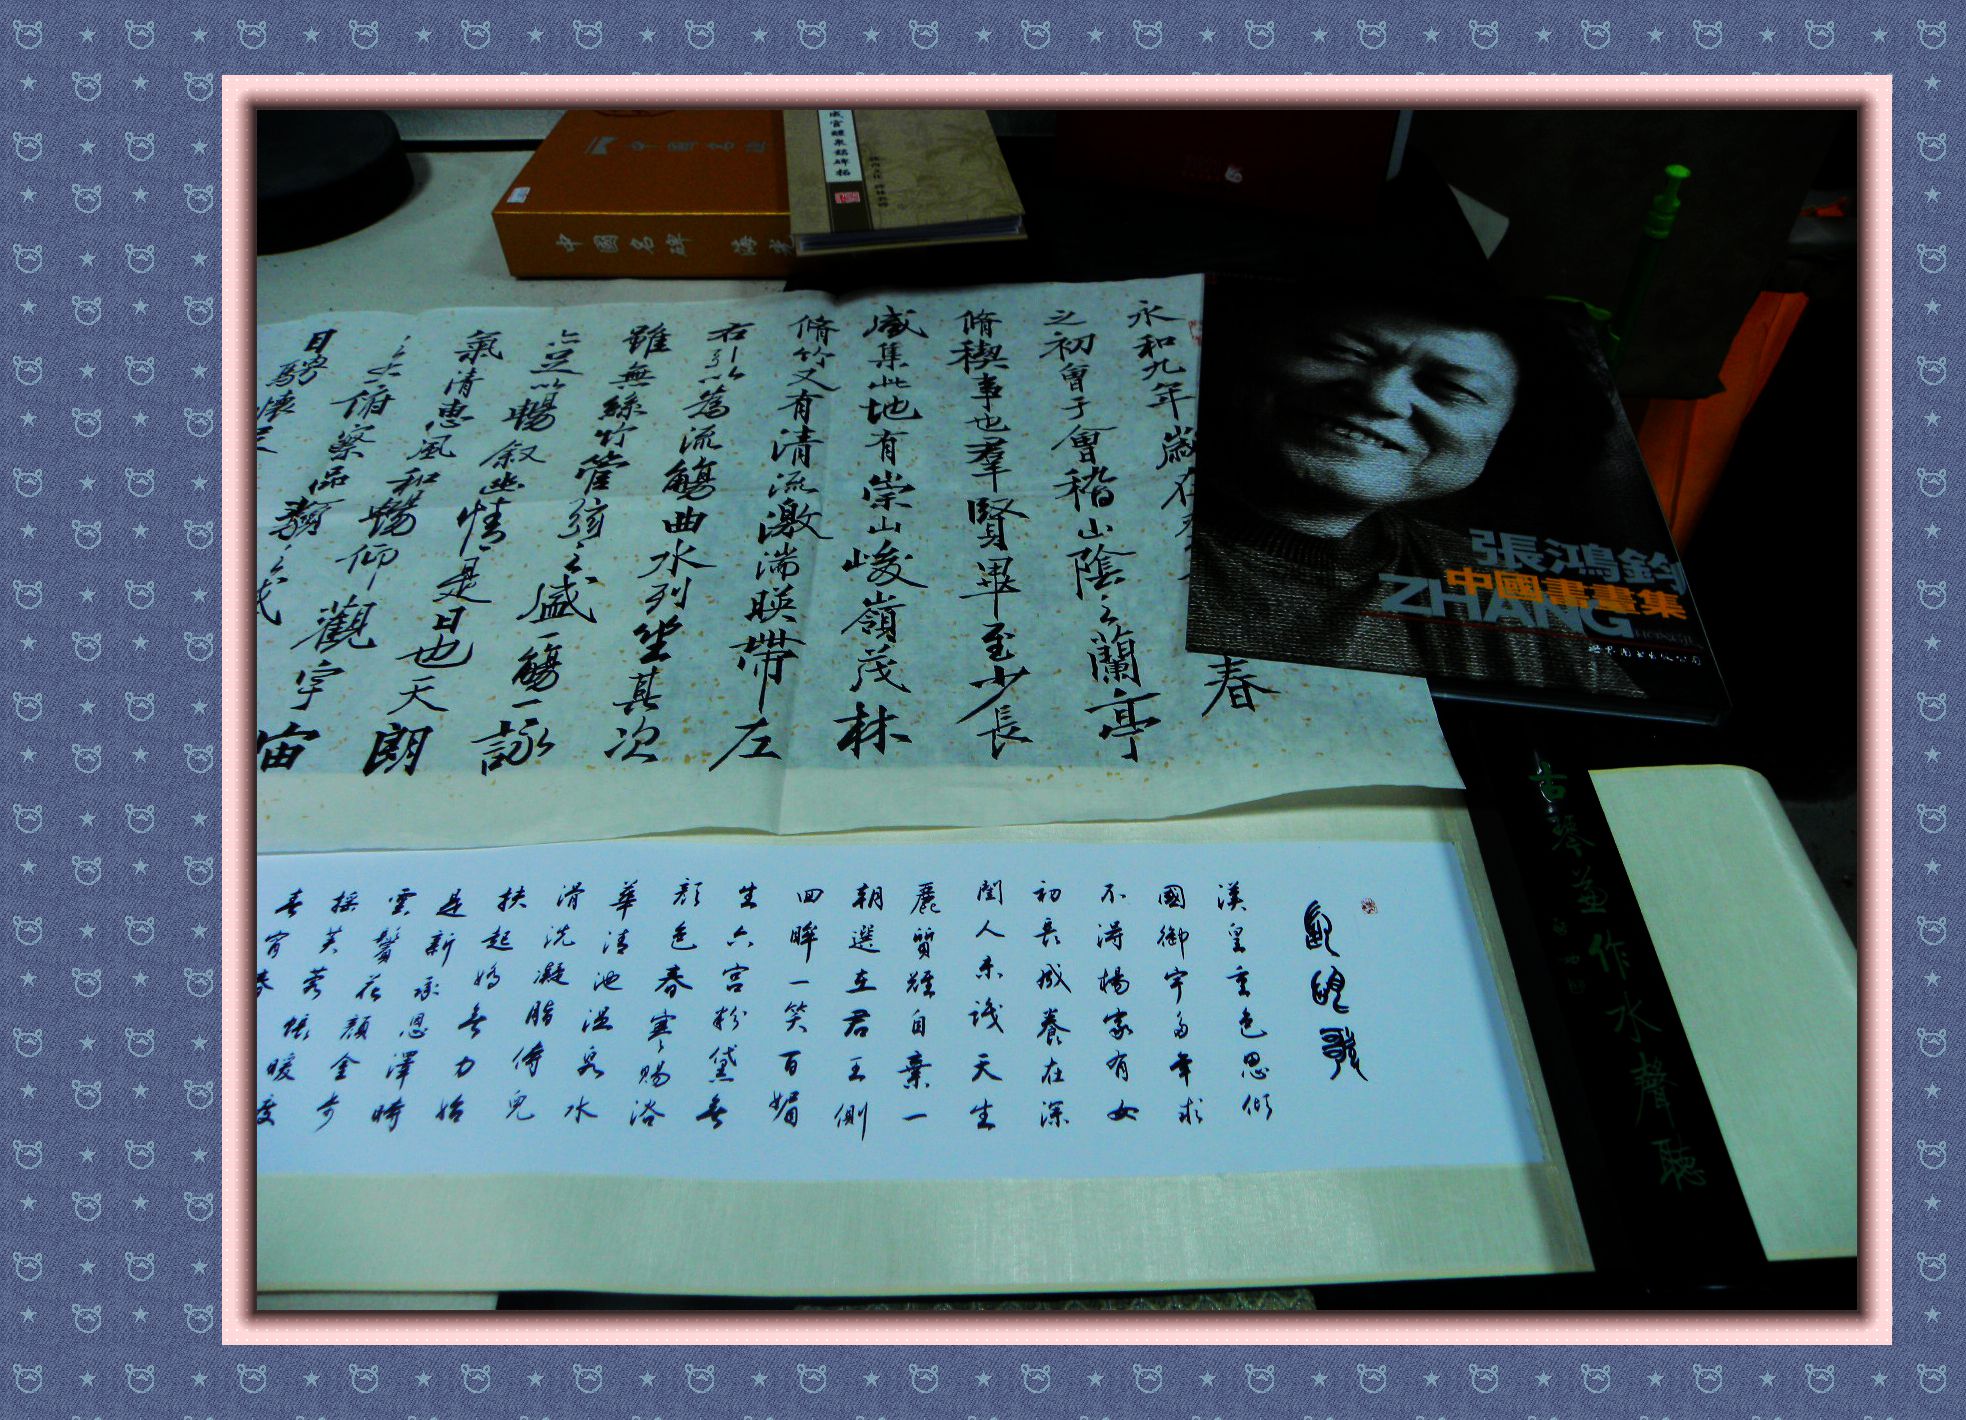 中國名碑
中國名碑 海光
成宮醴泉銘碑 拓
永和九年歲在 春
之初會于會稽山陰之蘭亭
脩稧事也羣賢畢至少長
咸集此地有崇山峻嶺茂林
脩竹又有清流激湍暎帶左
右引以為流觴曲水列坐其次
雖無絲竹管弦之盛一觴一詠
亦足以暢叙幽情是日也天朗
氣清惠風和暢仰觀宇宙
之大俯察品類之盛
日騁懷足
張鴻鈞
中國書畫集
ZHANG
長恨歌
漢皇重色思傾
國御宇多年求
不得楊家有女
初長成養在深
閨人未識天生
麗質難自棄一
朝選在君王側
回眸一笑百媚
生六宮粉黛無
顏色春寒賜浴
華清池溫泉水
滑洗凝脂侍兒
扶起嬌無力始
是新承恩澤時
雲鬢花顏金步
搖芙蓉帳暖度
春宵春
古琴並作水聲聽